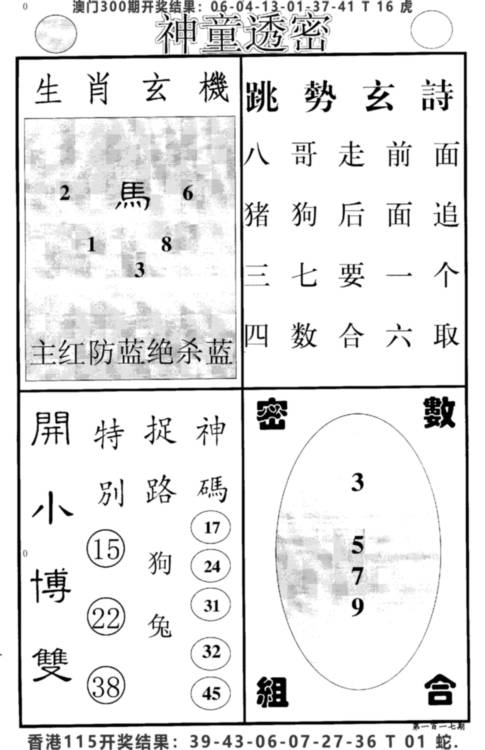 澳门300期开奖结果：06-04-13-01-37-41 T 16 虎
神童透密
生肖玄機
馬
2 6
1 8
3
主红防蓝绝杀蓝
跳勢玄詩
八哥走前面
猪狗后面追
三七要一个
四数合六取
開小博雙
特別
15
22
38
捉路
狗
兔
神碼
17
24
31
32
45
密數
3
5
7
9
組合
第一百一七期
香港115开奖结果：39-43-06-07-27-36 T 01 蛇